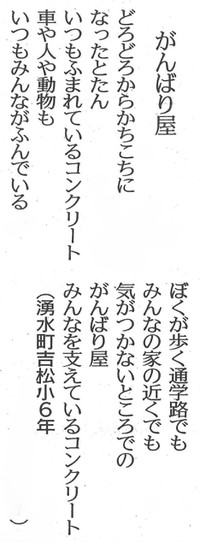 がんばり屋
どろどろからかちこちに
なったとたん
いつもふまれているコンクリート
車や人や動物も
いつもみんながふんでいる
ぼくが歩く通学路でも
みんなの家の近くでも
気がつかないところでの
がんばり屋
みんなを支えているコンクリート
（湧水町吉松小６年　　　）